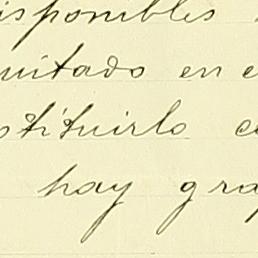 isponibles
uitado en e
stituirlo c
hay gra